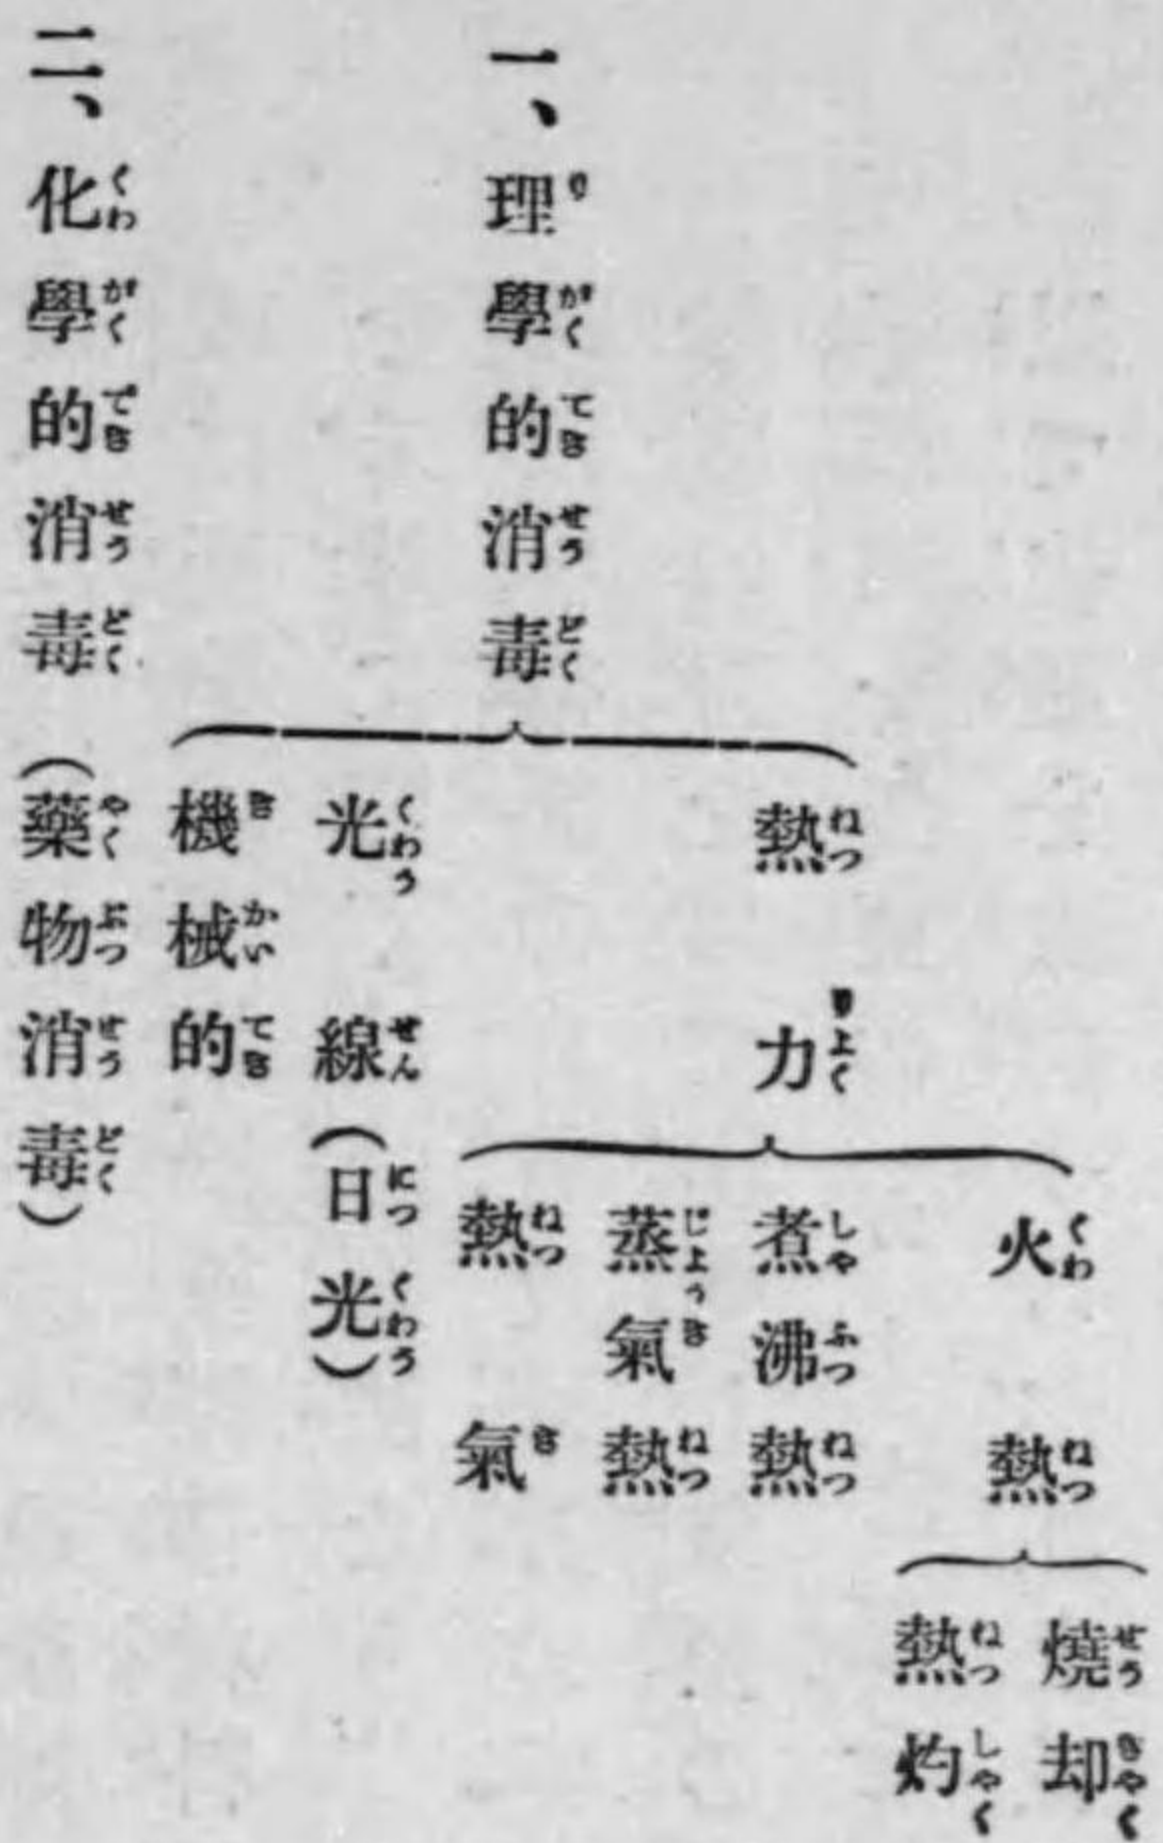 一、理學的消毒
熱力
火熱
燒却
熱灼
煮沸熱
蒸氣熱
熱氣
光線（日光）
機械的
二、化學的消毒（藥物消毒）